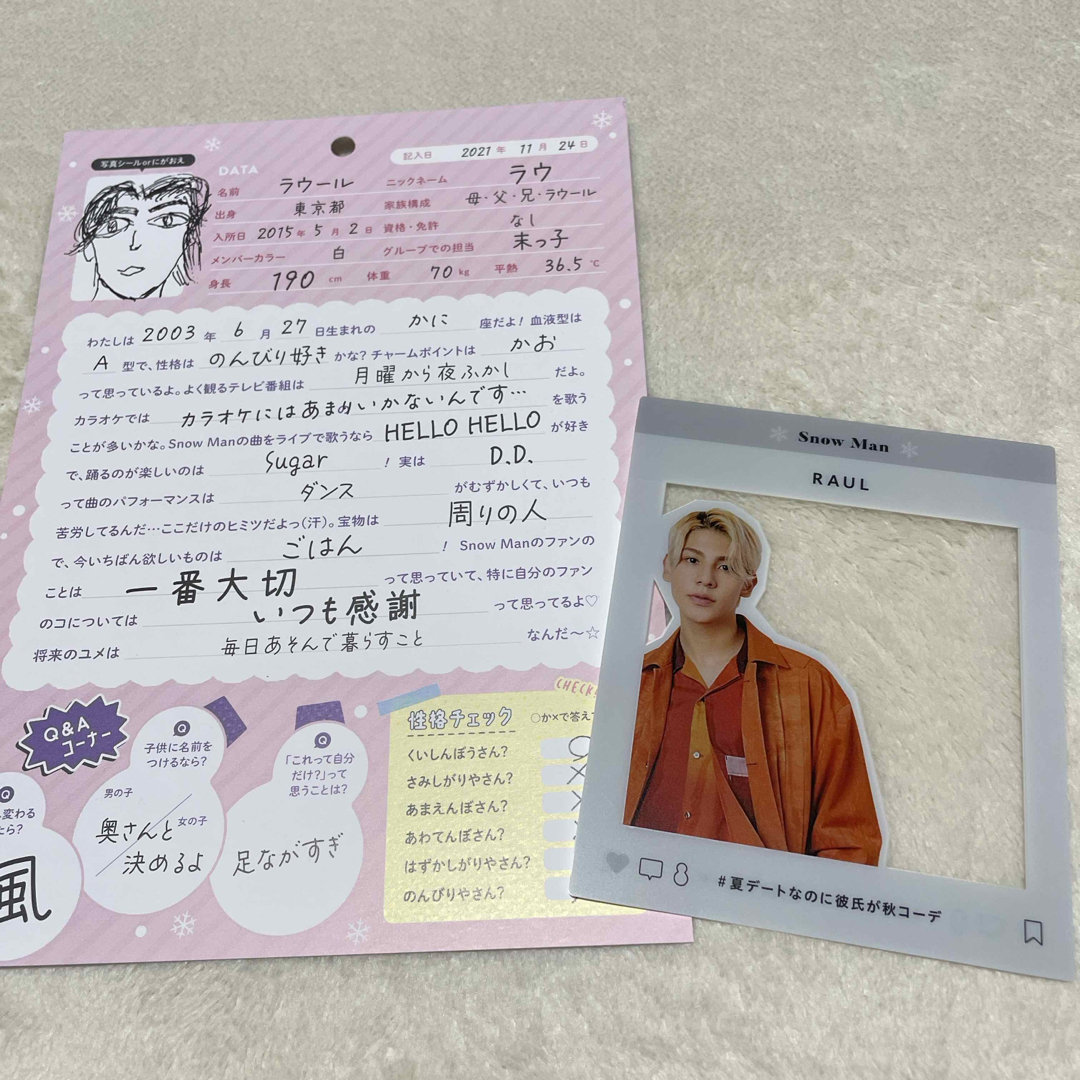 写真シールorにがおえ
DATA
記入日 2021年 11月 24日
名前 ラウール ニックネーム ラウ
出身 東京都 家族構成 母・父・兄・ラウール
入所日 2015年 5月 2日 資格・免許 なし
メンバーカラー 白 グループでの担当 末っ子
身長 190 cm 体重 70 kg 平熱 36.5 ℃
わたしは 2003 年 6 月 27 日生まれの かに 座だよ! 血液型は
A 型で、性格は のんびり好き かな? チャームポイントは かお
って思っているよ。よく観るテレビ番組は 月曜から夜ふかし だよ。
カラオケでは カラオケにはあまりいかないんです… を歌う
ことが多いかな。Snow Manの曲をライブで歌うなら HELLO HELLO が好き
で、踊るのが楽しいのは Sugar ! 実は D.D.
って曲のパフォーマンスは ダンス がむずかしくて、いつも
苦労してるんだ…ここだけのヒミツだよっ(汗)。宝物は 周りの人
で、今いちばん欲しいものは ごはん ! Snow Manのファンの
ことは 一番大切 って思っていて、特に自分のファン
のコについては いつも感謝 って思ってるよ♡
将来のユメは 毎日あそんで暮らすこと なんだ〜☆
Q&A
コーナー
Q
変わる
たら?
風
Q
子供に名前を
つけるなら?
男の子
女の子
奥さんと
決めるよ
Q
「これって自分
だけ?」って
思うことは?
足ながすぎ
CHECK
性格チェック ○か×で答え
くいしんぼうさん? ○
さみしがりやさん? ×
あまえんぼさん?
あわてんぼさん?
はずかしがりやさん?
のんびりやさん?
Snow Man
RAUL
#夏デートなのに彼氏が秋コーデ